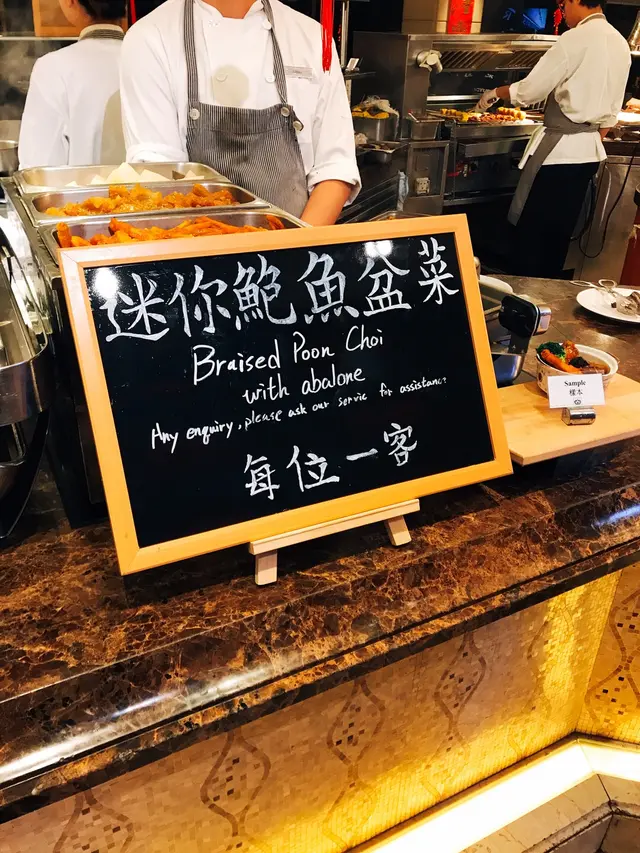 迷你鮑魚盆菜
Braised Poon Choi
with abalone
Any enquiry, please ask our servic for assistance
每位一客
Sample
樣本